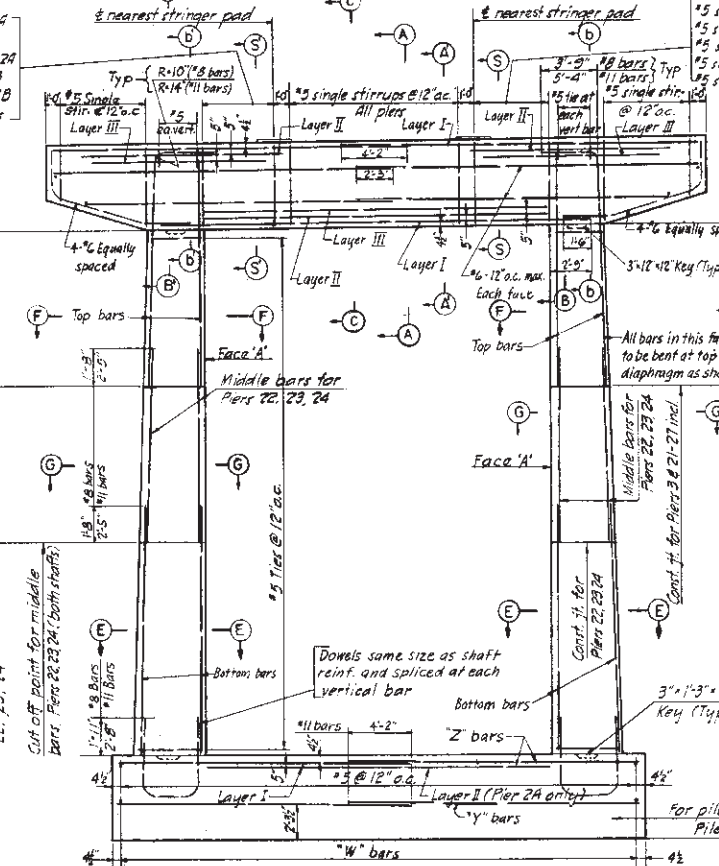 ℄ nearest stringer pad
℄ nearest stringer pad
C
A
A'
b'
S'
S
b
Typ
R=10" (#8 bars)
R=14" (#11 bars)
3'-9" #8 bars
5'-4" #11 bars
Typ
1'-0"
#5 Single
Stir. @ 12" o.c
#5 single stirrups @ 12" o.c.
All piers
1'-0"
1'-0"
#5 single stir.
@ 12" o.c.
1'-0"
#5
ea. vert.
#5 tie at
each
vert bar
Layer III
Layer II
Layer I
Layer II
Layer III
5"
5"
4½"
4'-2"
2'-3"
4-#6 Equally
spaced
Layer III
Layer II
Layer I
4½"
5"
5"
#6-12" o.c. max.
Each face
1'-6"
2'-9"
4-#6 Equally
3"x12"x12" Key (Typ
b'
B'
S'
S
B
b
A'
C
A
F
Top bars
F
F
Top bars
All bars in this
to be bent at top
diaphragm as
1'-8"
2'-5"
Face "A"
Middle bars for
Piers 22, 23, 24
G
G
#8 bars
#11 bars
1'-8"
2'-5"
#5 Ties @ 12" o.c.
G
G
Face "A"
Middle bars for
Piers 22, 23, 24
Const. jt. for Piers 3 & 21-27 incl.
Cut off point for middle
bars, Piers 22, 23, 24, (both shafts)
E
E
E
E
Const. jt. for
Piers 22, 23, 24
#8 Bars
#11 Bars
1'-11"
2'-8"
Bottom bars
Dowels same size as shaft
reinf. and spliced at each
vertical bar
Bottom bars
3" x 1'-3" x
Key (Typ
#11 bars
4'-2"
4½"
"Z" bars
5"
#5 @ 12" o.c.
4½"
4½"
Layer I
Layer II (Pier 2A only)
"Y" bars
2'-3½"
For
Pile
4½"
"W" bars
4½